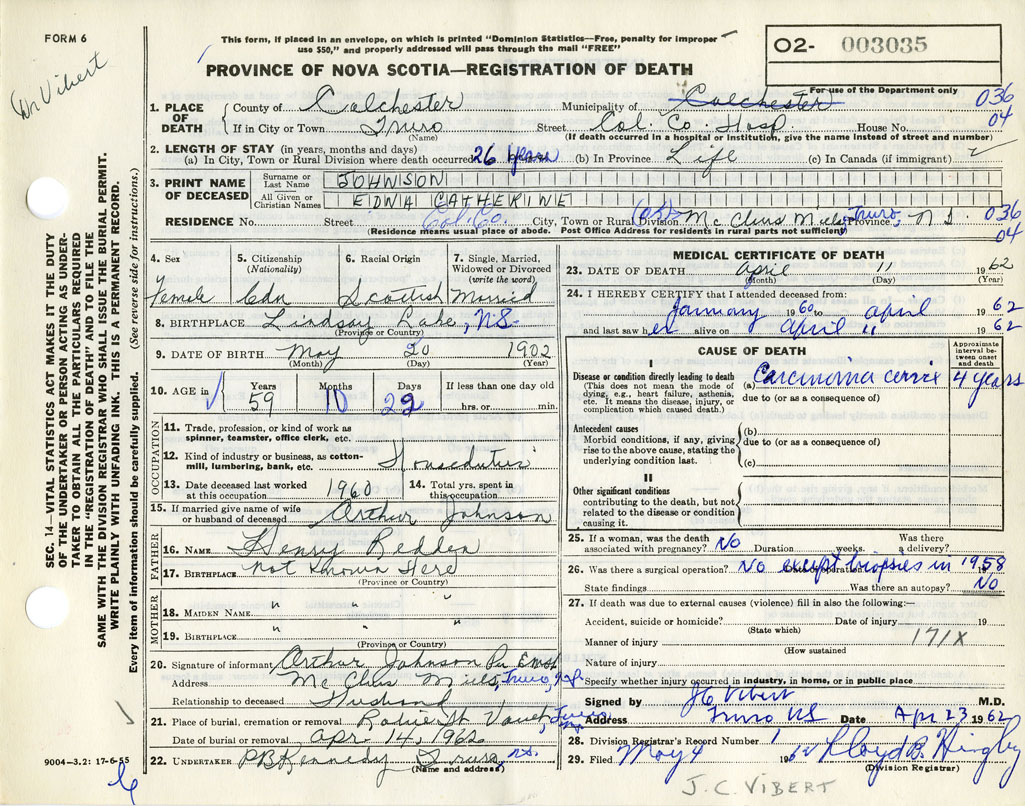 FORM 6
Dr Vibert
This form, if placed in an envelope, on which is printed "Dominion Statistics—Free, penalty for improper
use $50," and properly addressed will pass through the mail "FREE"
O2- 003035
For use of the Department only
PROVINCE OF NOVA SCOTIA—REGISTRATION OF DEATH
SEC. 14—VITAL STATISTICS ACT MAKES IT THE DUTY
OF THE UNDERTAKER OR PERSON ACTING AS UNDER-
TAKER TO OBTAIN ALL THE PARTICULARS REQUIRED
IN THE "REGISTRATION OF DEATH" AND TO FILE THE
SAME WITH THE DIVISION REGISTRAR WHO SHALL ISSUE THE BURIAL PERMIT.
WRITE PLAINLY WITH UNFADING INK. THIS IS A PERMANENT RECORD.
Every item of information should be carefully supplied. (See reverse side for instructions.)
1. PLACE OF DEATH
County of Colchester Municipality of Colchester 036
If in City or Town Truro Street Col. Co. Hosp House No. 04
(Name) (If death occurred in a hospital or institution, give the name instead of street and number)
2. LENGTH OF STAY (in years, months and days)
(a) In City, Town or Rural Division where death occurred 26 years (b) In Province Life (c) In Canada (if immigrant)
3. PRINT NAME OF DECEASED
Surname or Last Name JOHNSON
All Given or Christian Names EDNA CATHERINE
RESIDENCE No. Street Col. Co. City, Town or Rural Division Mc Clures Mills Truro, Province N S 036
04
(Residence means usual place of abode. Post Office Address for residents in rural parts not sufficient)
4. Sex 5. Citizenship (Nationality) 6. Racial Origin 7. Single, Married, Widowed or Divorced (write the word)
Female Cdn Scottish Married
8. BIRTHPLACE Lindsay Lake, N.S.
(Province or Country)
9. DATE OF BIRTH May 20 1902
(Month) (Day) (Year)
10. AGE in Years Months Days If less than one day old
59 10 22 hrs. or min.
OCCUPATION
11. Trade, profession, or kind of work as
spinner, teamster, office clerk, etc.
12. Kind of industry or business, as cotton-
mill, lumbering, bank, etc. Houseduties
13. Date deceased last worked
at this occupation 1960
14. Total yrs. spent in
this occupation
15. If married give name of wife
or husband of deceased Arthur Johnson
FATHER
16. NAME Henry Redden
17. BIRTHPLACE Not Known Here
(Province or Country)
MOTHER
18. MAIDEN NAME " " "
19. BIRTHPLACE " " "
(Province or Country)
20. Signature of informant Arthur Johnson Per
Address Mc Clures Mills, Truro, N.S.
Relationship to deceased Husband
21. Place of burial, cremation or removal Robie St. Vault, Truro
Date of burial or removal Apr 14, 1962
22. UNDERTAKER P B Kennedy Truro N.S.
(Name and address)
9004—3.2: 17-6-55
MEDICAL CERTIFICATE OF DEATH
23. DATE OF DEATH April 11 1962
(Month) (Day) (Year)
24. I HEREBY CERTIFY that I attended deceased from:
January 1960 to April 1962
and last saw her alive on April 11 1962
CAUSE OF DEATH
Approximate interval be- tween onset and death
I
Disease or condition directly leading to death
(This does not mean the mode of
dying, e.g., heart failure, asthenia,
etc. It means the disease, injury, or
complication which caused death.)
(a) Carcinoma cervix 4 years
due to (or as a consequence of)
Antecedent causes
Morbid conditions, if any, giving
rise to the above cause, stating the
underlying condition last.
(b)
due to (or as a consequence of)
(c)
II
Other significant conditions
contributing to the death, but not
related to the disease or condition
causing it.
25. If a woman, was the death
associated with pregnancy? No Duration weeks. Was there
a delivery?
26. Was there a surgical operation? No except biopsies in 1958
State findings Was there an autopsy? No
27. If death was due to external causes (violence) fill in also the following:—
Accident, suicide or homicide? Date of injury 19
(State which)
Manner of injury 171X
(How sustained
Nature of injury
Specify whether injury occurred in industry, in home, or in public place
Signed by J C Vibert M.D.
Address Truro NS Date Apr 23 1962
28. Division Registrar's Record Number 1
29. Filed May 4 1962 Lloyd B.
(Division Registrar)
J. C. VIBERT